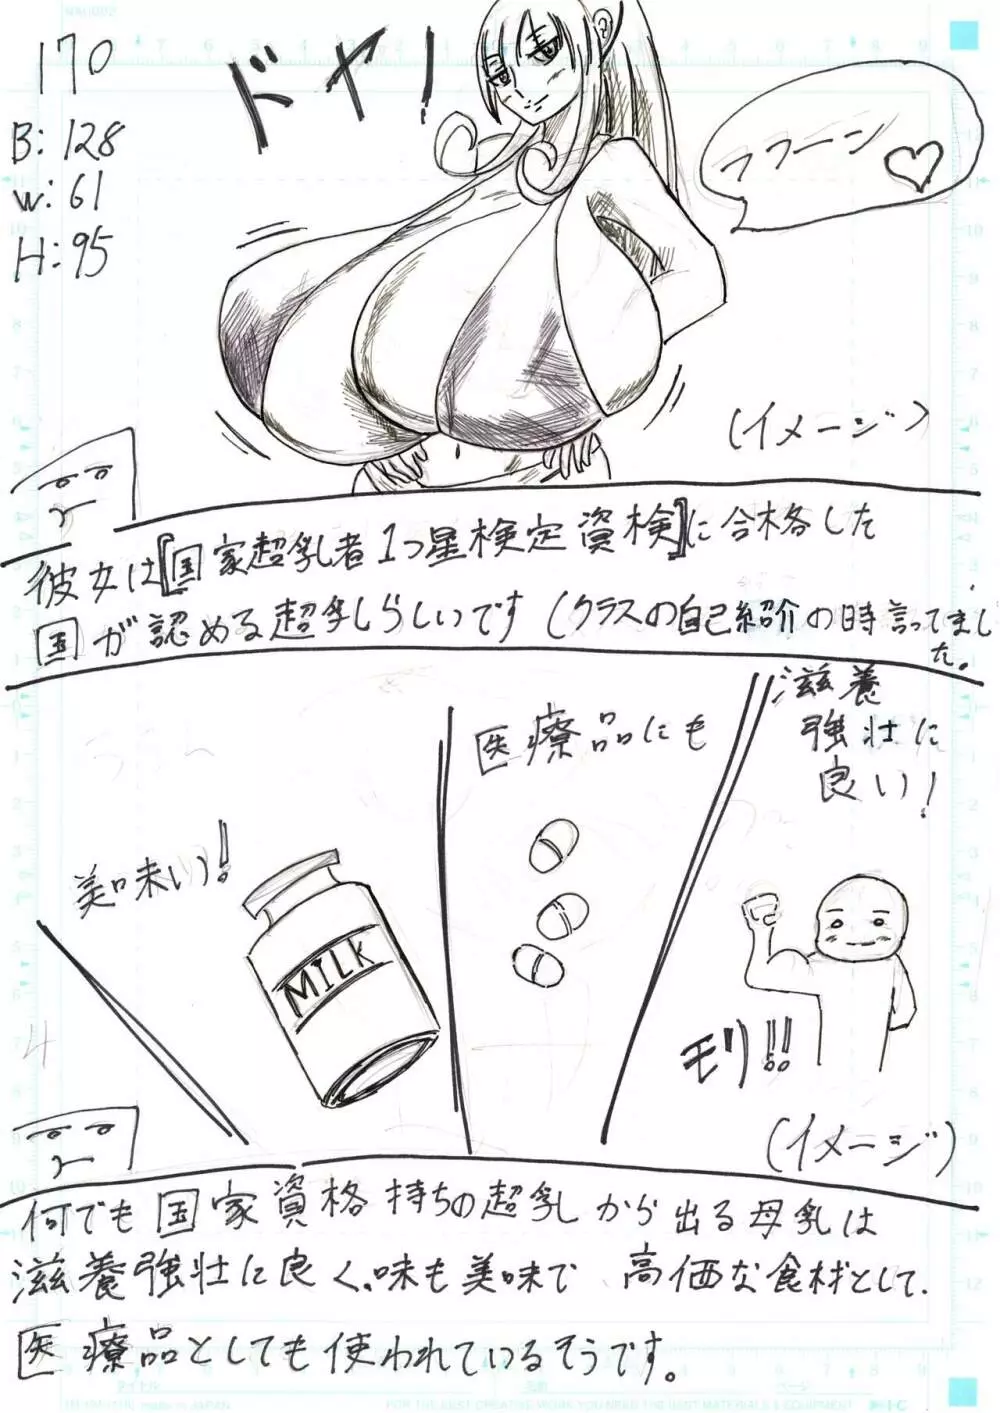 170
B: 128
W: 61
H: 95
ドヤ!
フフーン♡
(イメージ)
彼女は『国家超乳者1つ星検定資検』に合格した
国が認める超乳しらしいです(クラスの自己紹介の時言ってまし
た。
美味い!!
MILK
医療品にも
滋養
強壮に
良い!
モリ!!
(イメージ)
何でも国家資格持ちの超乳から出る母乳は
滋養強壮に良く、味も美味で 高価な食材として、
医療品としても使われているそうです。